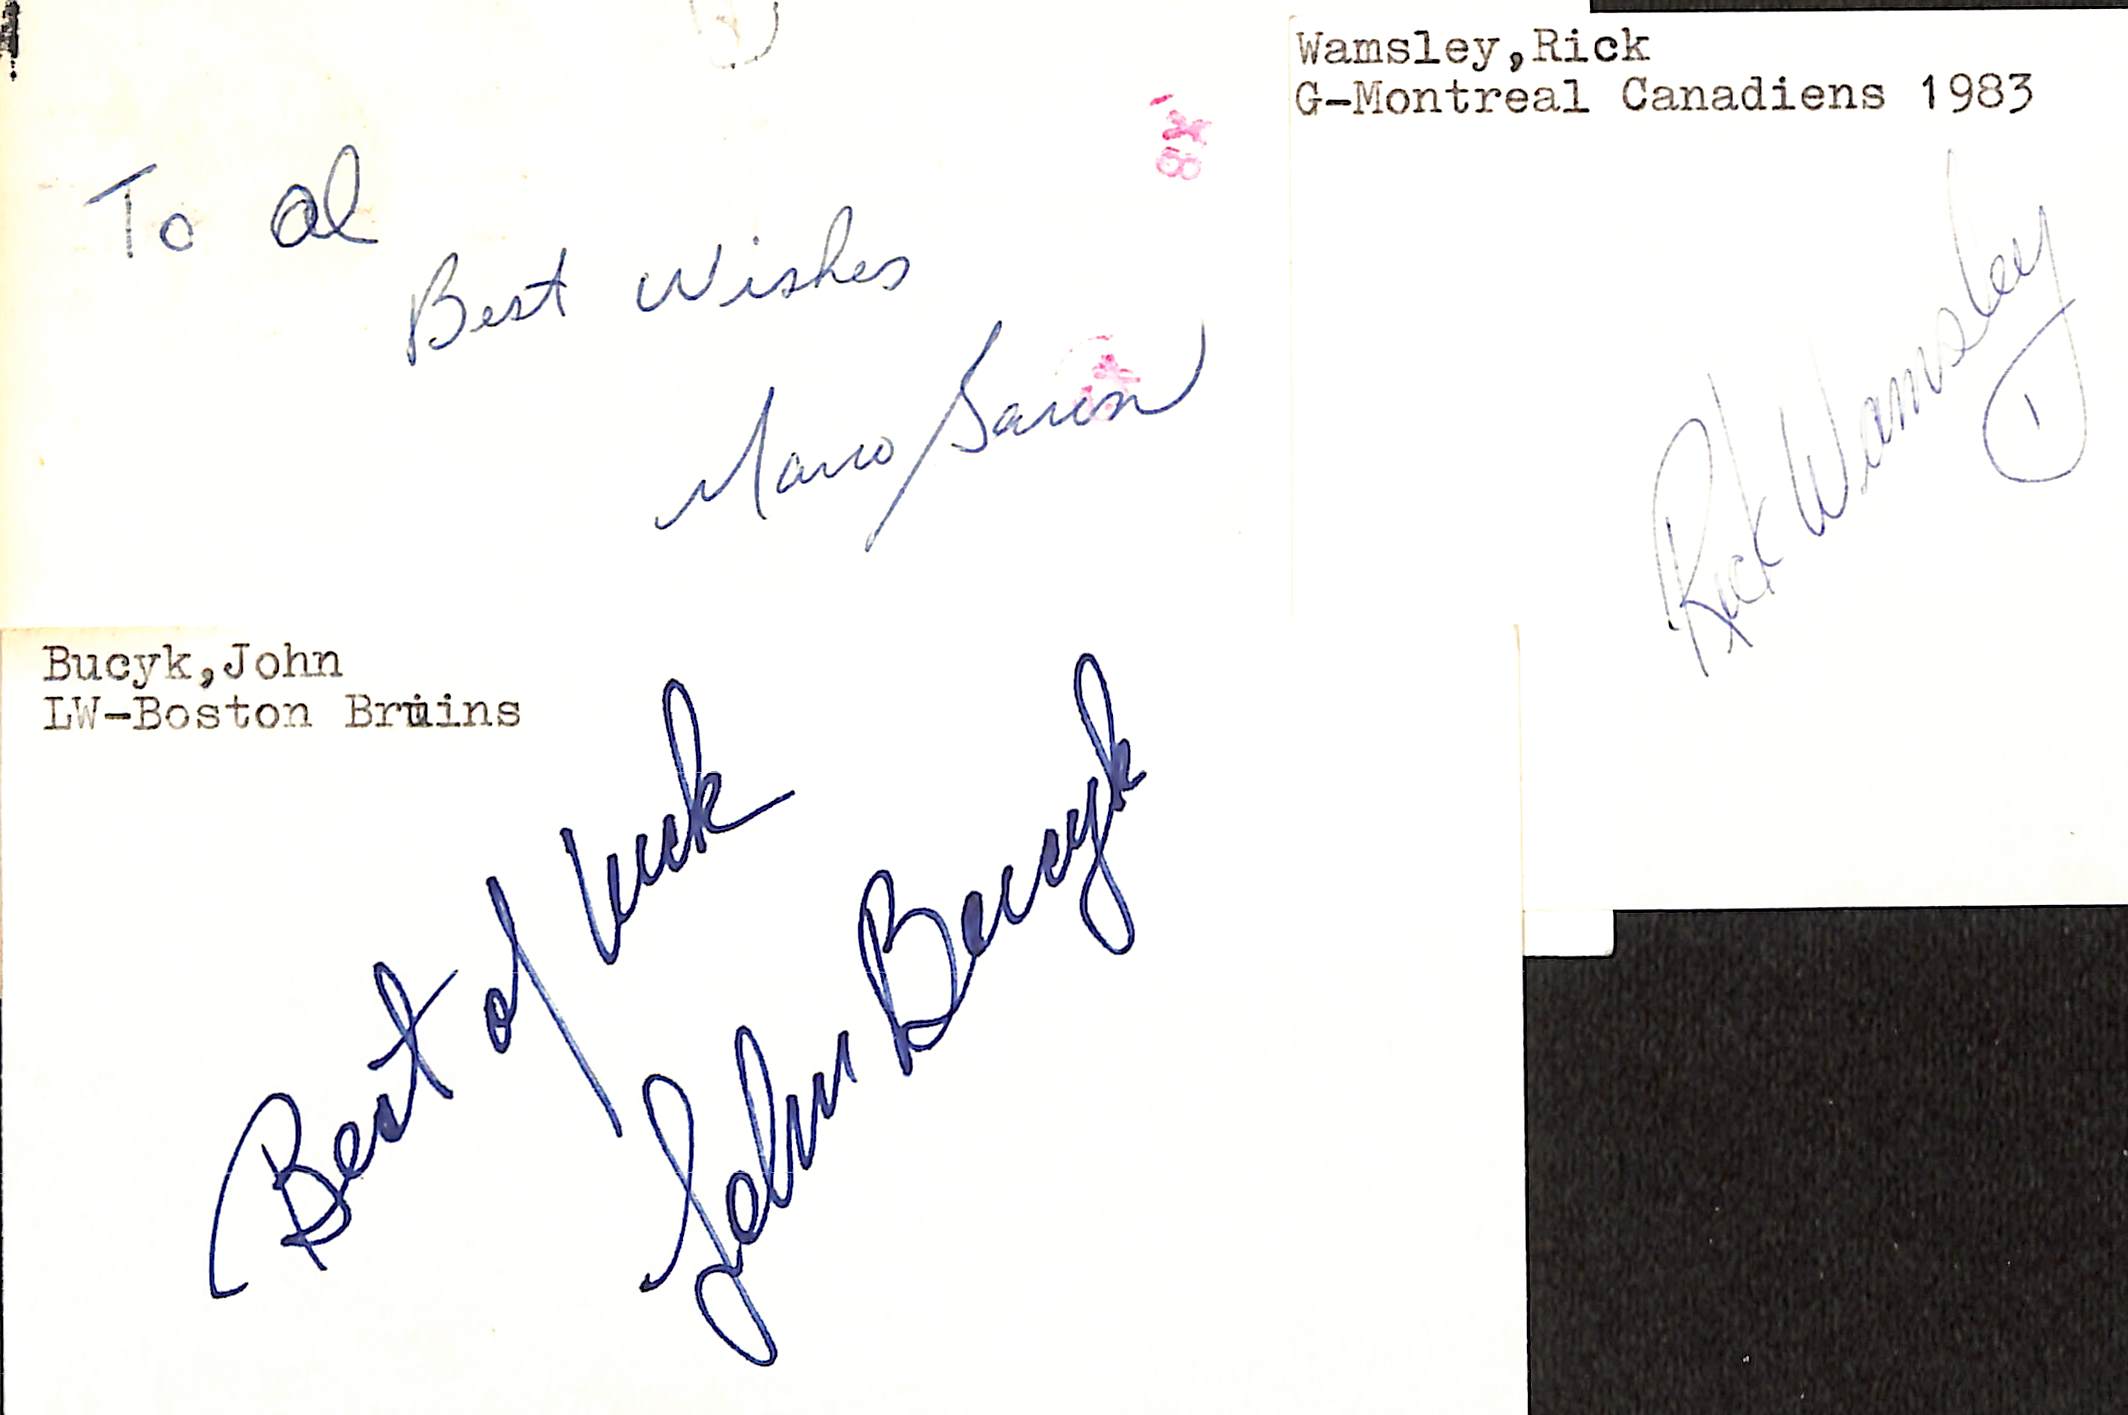 To Al
Best Wishes
Wamsley,Rick
G-Montreal Canadiens 1983
Rick Wamsley
Bucyk,John
LW-Boston Bruins
Best of luck
John Bucyk